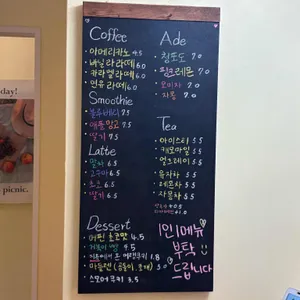 Coffee
· 아메리카노 4.5
· 바닐라라떼 6.0
· 카라멜라떼 6.0
· 연유라떼 6.0
Smoothie
· 블루베리 7.0
· 애플망고 7.5
· 딸기 7.5
Latte
· 말차 6.5
· 고구마 6.5
· 초코 6.5
· 딸기 6.5
Dessert
· 버터 4.5
4.5
1.8
· 마들렌
· 스모어 쿠키 3.5
Ade
· 청포도 7.0
· 핑크레몬 7.0
· 오미자 7.0
· 자몽 7.0
Tea
· 아이스티 5.5
· 캐모마일 5.5
· 얼그레이 5.5
· 유자차 5.5
· 레몬차 5.5
· 자몽차 5.5
1인 1메뉴
부탁
드립니다
day!
picnic.